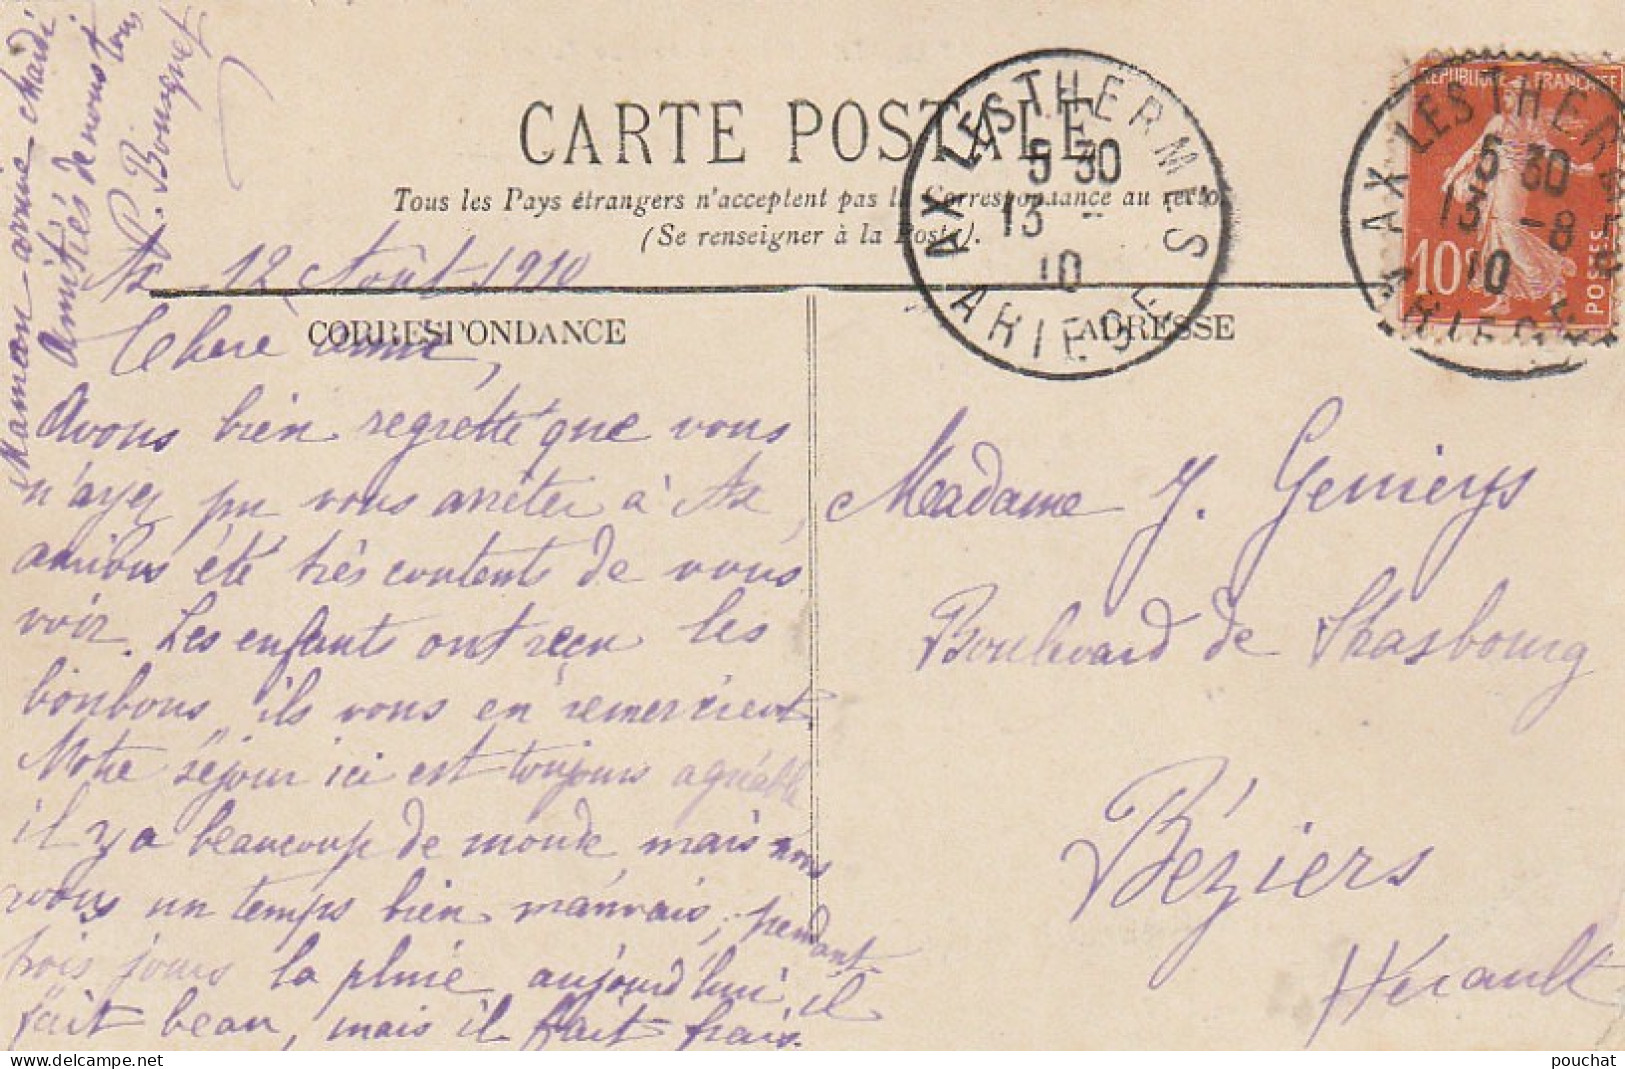 Maman arrive mardi
Amitiés de nous tous
P. Bousquet
CARTE POSTALE
Tous les Pays étrangers n'acceptent pas la Correspondance au recto.
(Se renseigner à la Poste).
Ax 12 Août 1910
CORRESPONDANCE
ADRESSE
Chère amie,
Avons bien regretté que vous
n'ayez pu vous arrêter à Ax,
aurions été très contents de vous
voir. Les enfants ont reçu les
bonbons, ils vous en remercient.
Notre séjour ici est toujours agréable
il y a beaucoup de monde mais nous
avons un temps bien mauvais, pendant
trois jours la pluie aujourd'hui il
fait beau, mais il fait frais.
Madame J. Genieys
Boulevard de Strasbourg
Béziers
Hérault
AX LES THERMES
5 30
13 -
10
ARIEGE
REPUBLIQUE FRANÇAISE
10c
POSTES
AX LES THERMES
5 30
13 -8
10
ARIEGE
pouchat